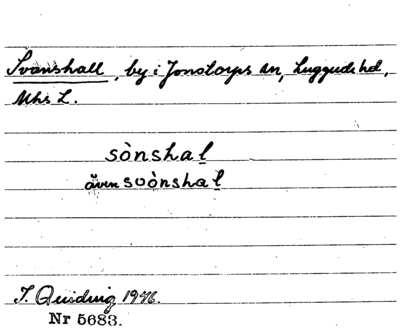 Svanshall, by i Jonstorps sn, Luggude hd,
Mhs L.
sònshal̲
även svònshal̲
T. Quiding 1946.
Nr 5683.